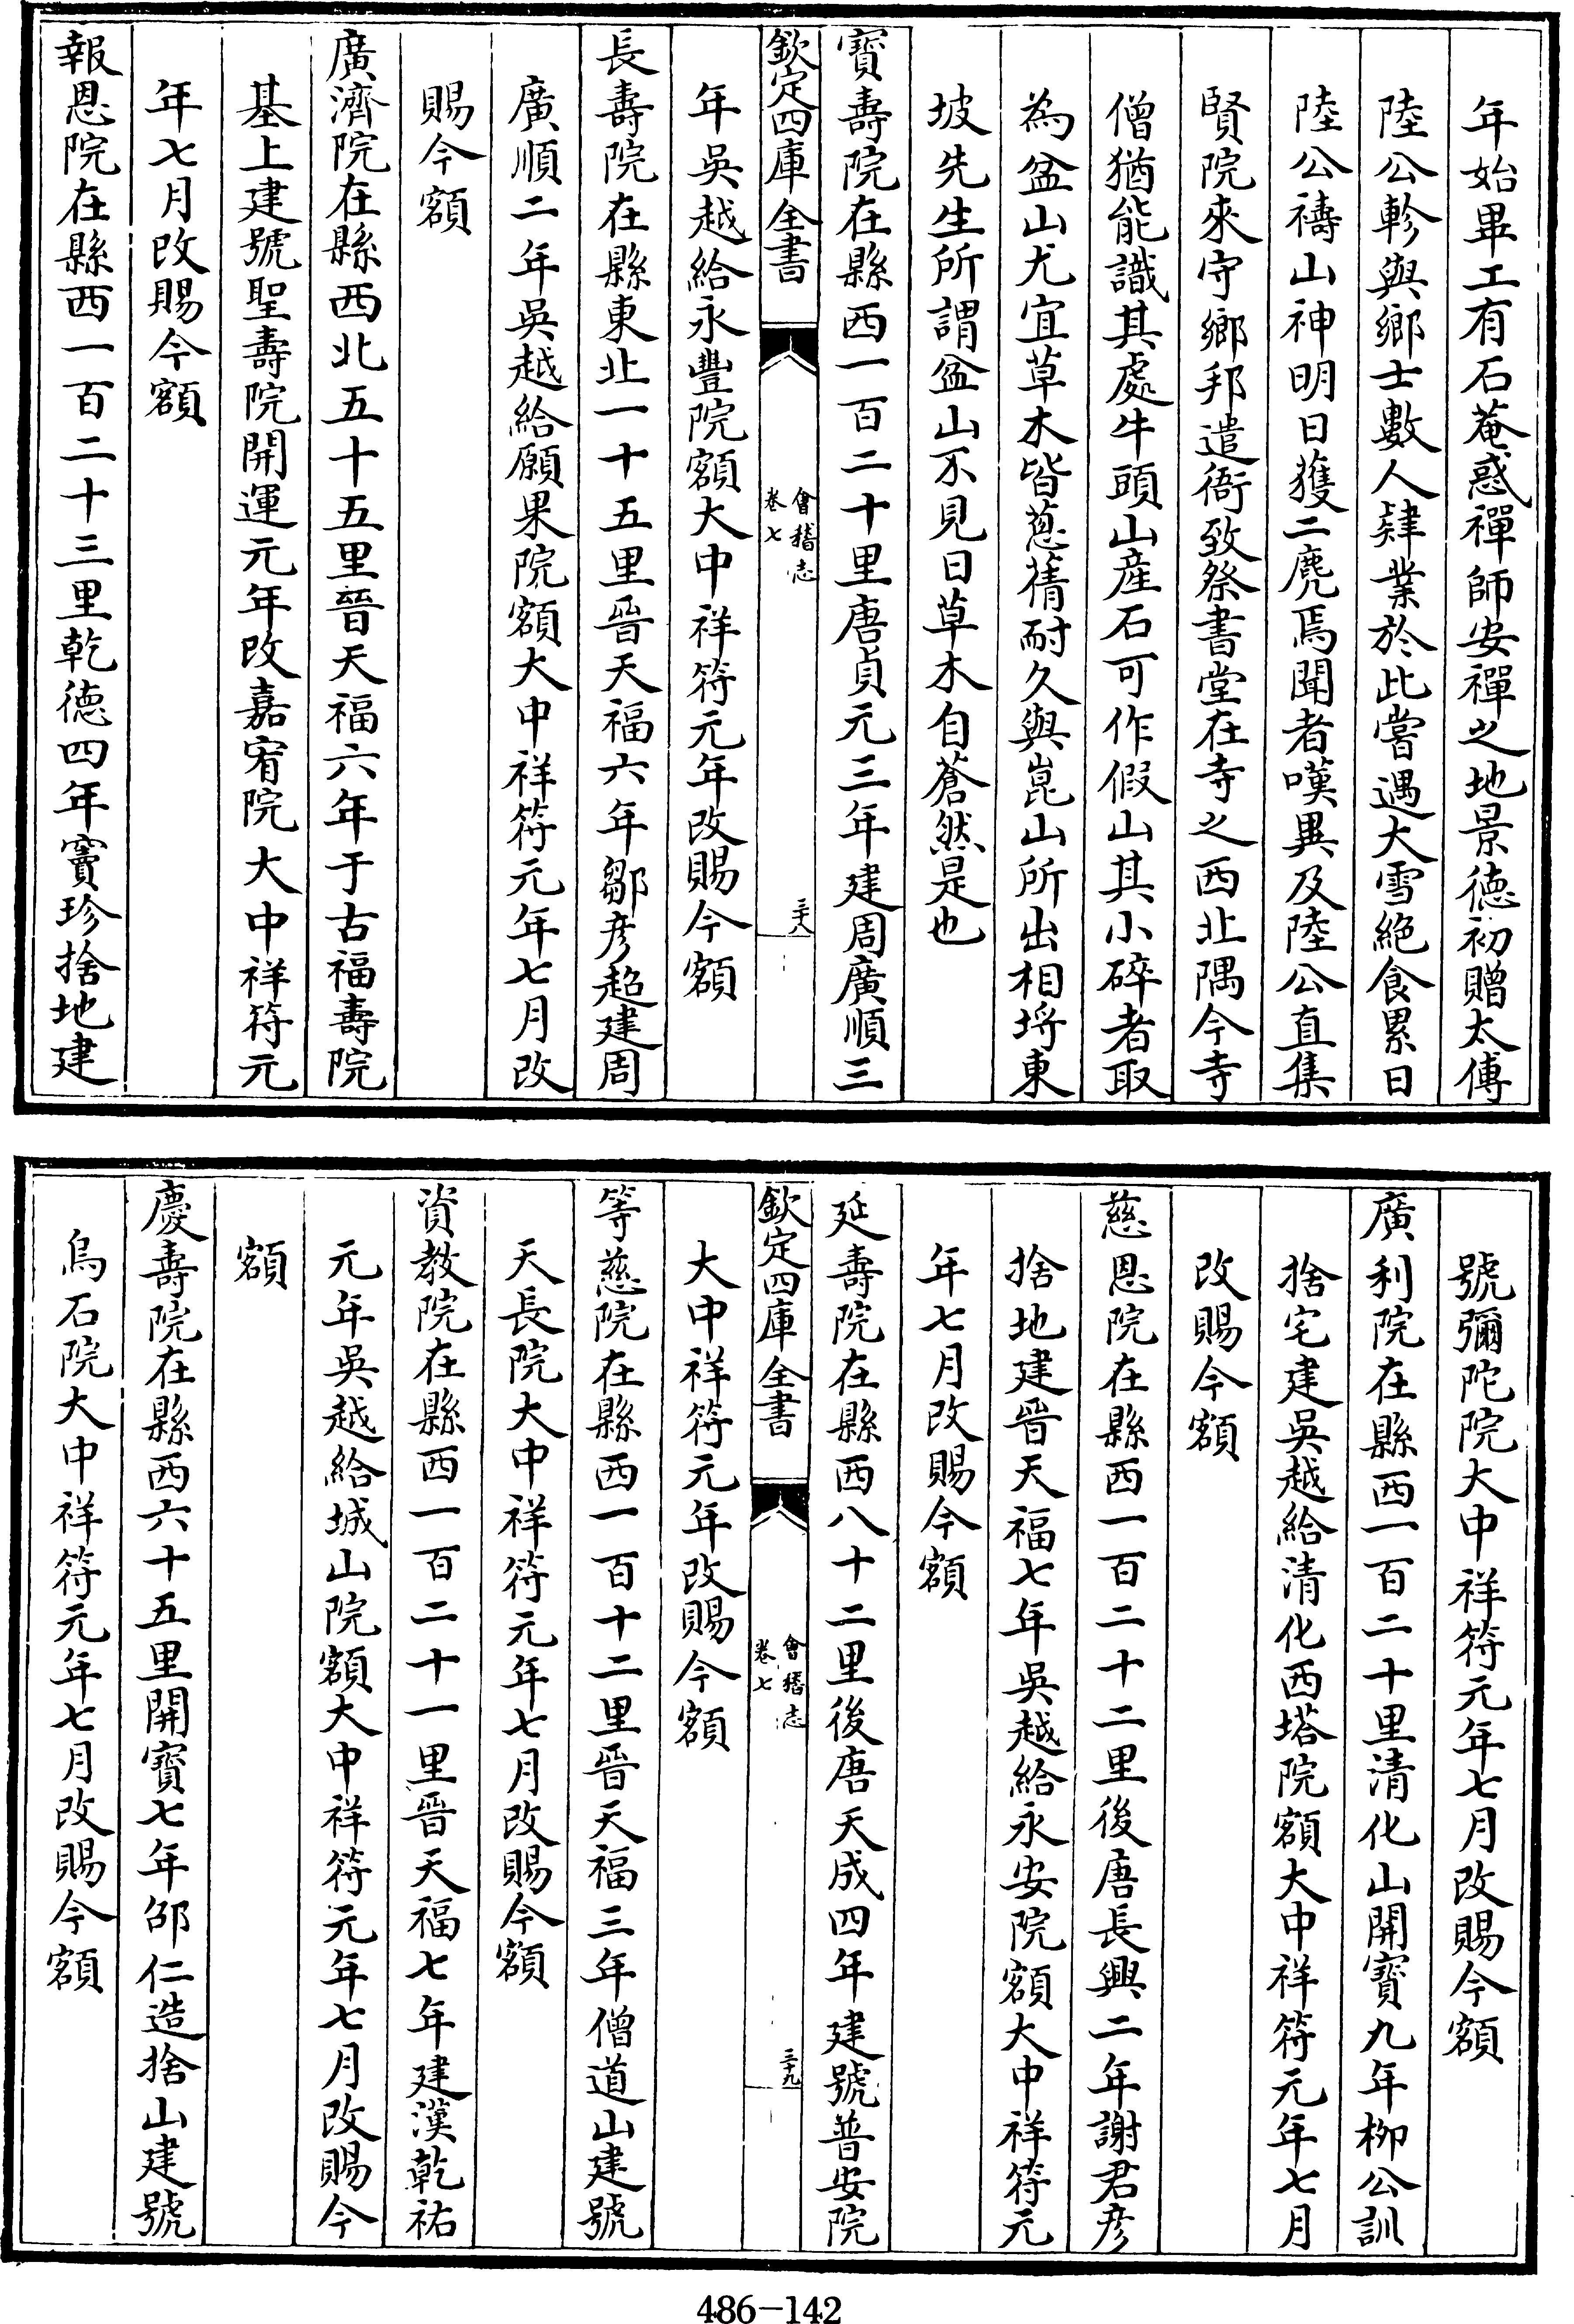 年始畢工有石菴惑禪師安禪之地景德初贈太傅
陸公軫與鄉士數人肄業於此嘗遇大雪絶食累日
陸公禱山神明日獲二麂焉聞者嘆異及陸公直集
賢院來守鄉邦遣衙致祭書堂在寺之西北隅今寺
僧猶能識其處牛頭山産石可作假山其小碎者取
為盆山尤宜草木皆蔥蒨耐久與崑山所出相埒東
坡先生所謂盆山不見日草木自蒼然是也
寶壽院在縣西一百二十里唐貞元三年建周廣順三
欽定四庫全書
會稽志
卷七
三十八
年吳越給永豐院額大中祥符元年改賜今額
長壽院在縣東北一十五里晉天福六年鄒彦超建周
廣順二年吳越給願果院額大中祥符元年七月改
賜今額
廣濟院在縣西北五十五里晉天福六年于古福壽院
基上建號聖壽院開運元年改嘉宥院大中祥符元
年七月改賜今額
報恩院在縣西一百二十三里乾德四年竇珍捨地建
號彌陀院大中祥符元年七月改賜今額
廣利院在縣西一百二十里清化山開寶九年柳公訓
捨宅建吳越給清化西塔院額大中祥符元年七月
改賜今額
慈恩院在縣西一百二十二里後唐長興二年謝君彦
捨地建晉天福七年吳越給永安院額大中祥符元
年七月改賜今額
延壽院在縣西八十二里後唐天成四年建號普安院
欽定四庫全書
會稽志
卷七
三十九
大中祥符元年改賜今額
等慈院在縣西一百十二里晉天福三年僧道山建號
天長院大中祥符元年七月改賜今額
資教院在縣西一百二十一里晉天福七年建漢乾祐
元年吳越給城山院額大中祥符元年七月改賜今
額
慶壽院在縣西六十五里開寶七年邵仁造捨山建號
烏石院大中祥符元年七月改賜今額
486-142